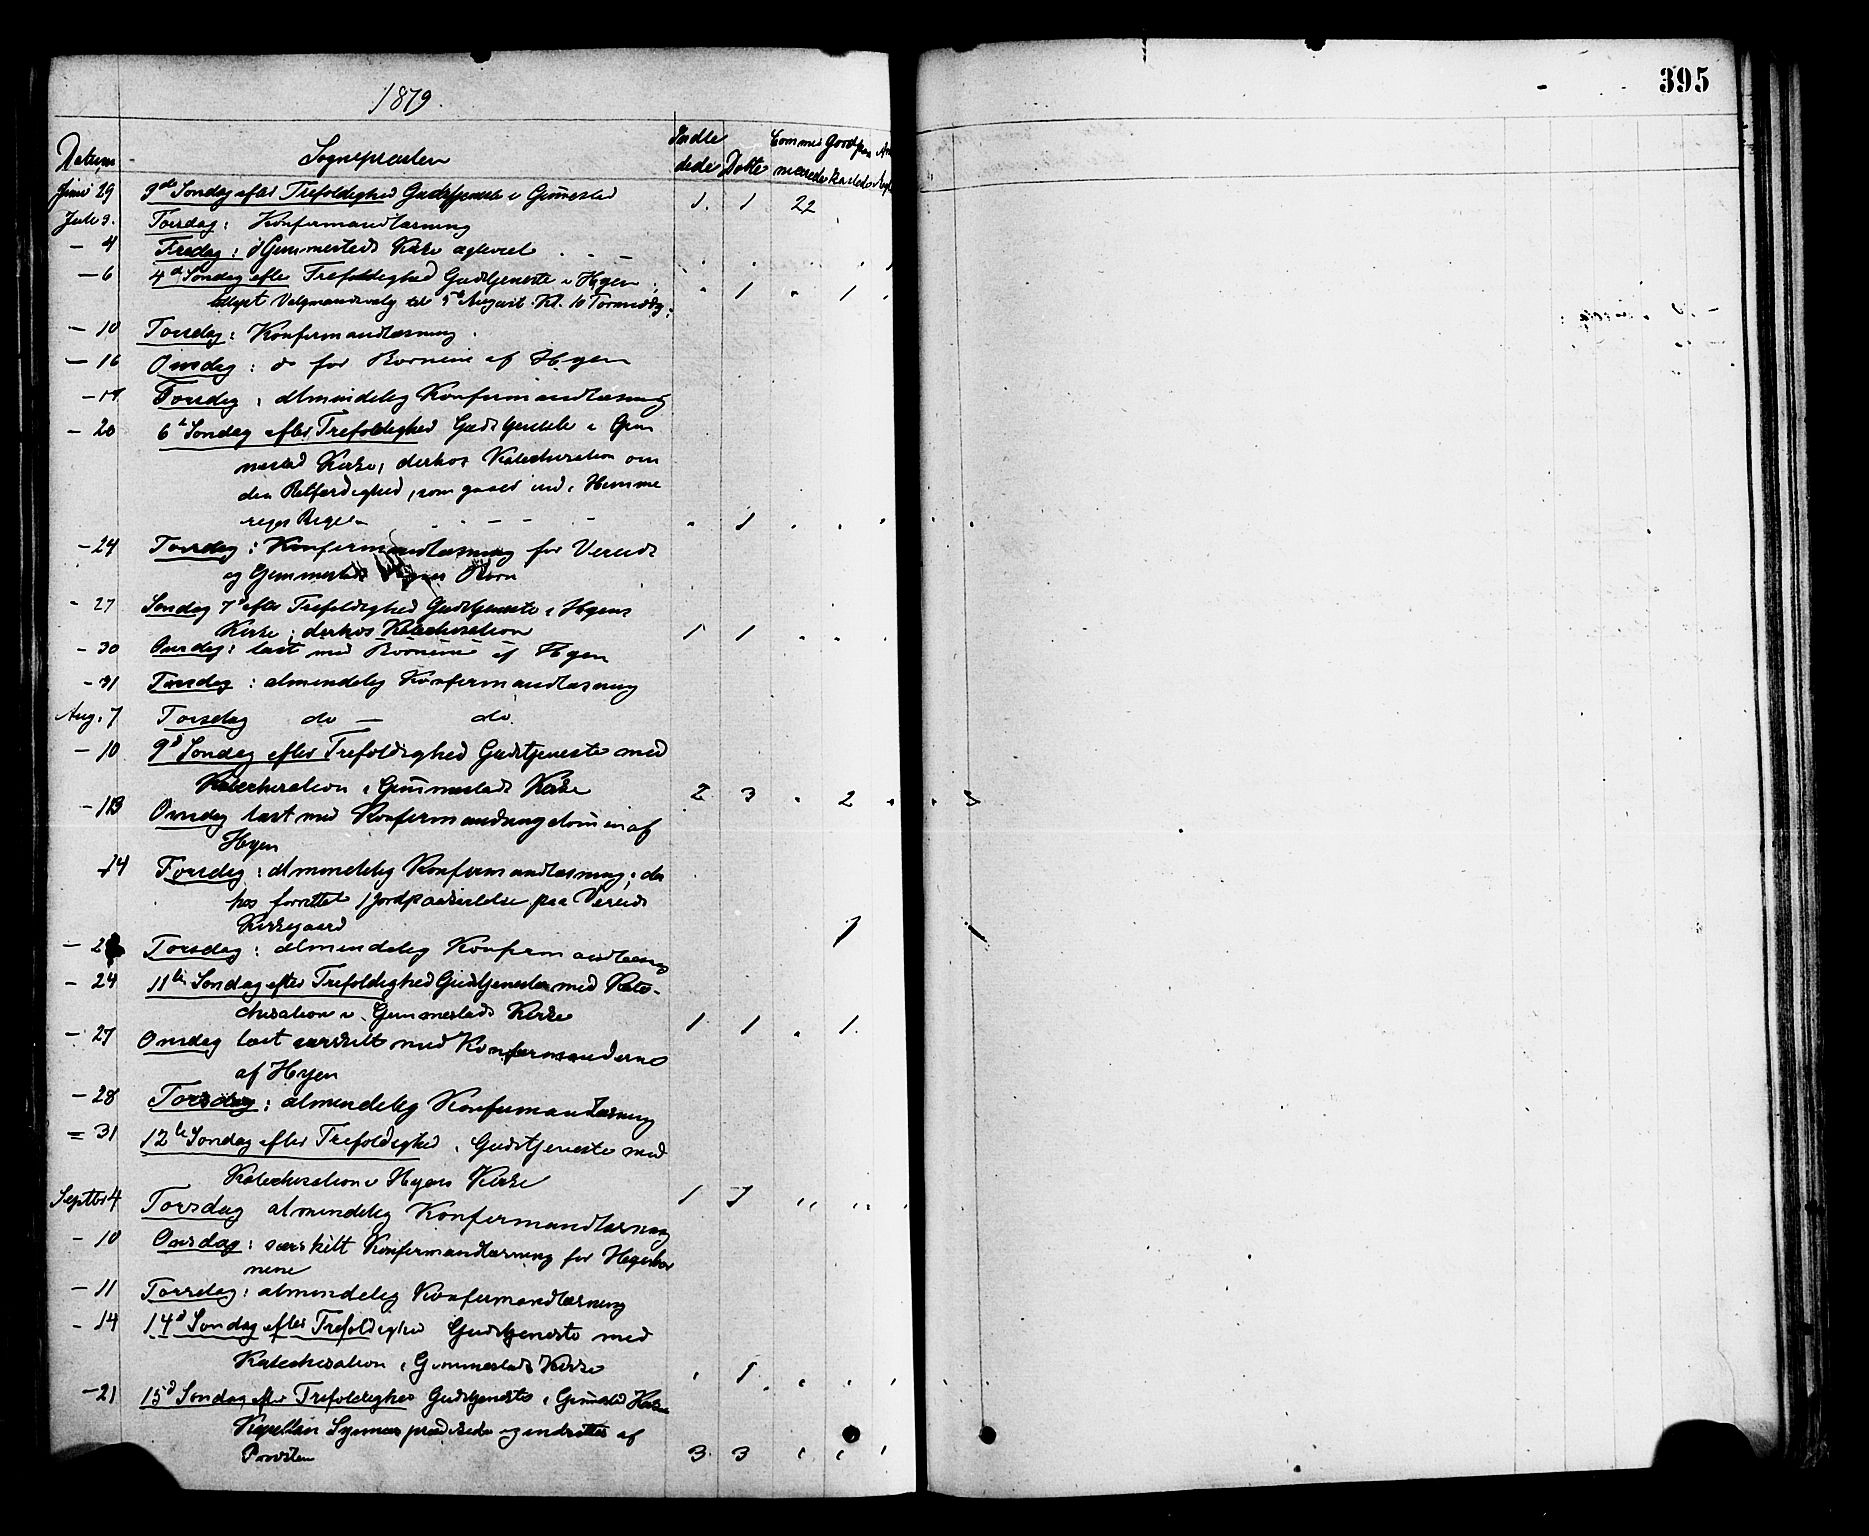 395
1879.
Datum, Sognepresten Indle Døbte Commu Jordpaa
dede nicerede kastede
Juni 29 3de Søndag efter Trefoldighed Gudstjeneste i Gimmestad 1. 1 22
Juli 3. Torsdag: Konfirmandlæsning
- 4 Fredag: Gimmestads Kirke
- 6 4de Søndag efter Trefoldighed Gudstjeneste i Hyen;
Valgmandsvalg til 5te August Kl. 10 Formiddg. 1 1
- 10 Torsdag: Konfirmandlæsning.
- 16 Onsdag: do for Børnene af Hyen
- 17 Torsdag: almindelig Konfirmandlæsning
- 20 6te Søndag efter Trefoldighed Gudstjeneste i Gim
mestad Kirke; derhos Katechisation om
den Retfærdighed, som gaaer ind i Himme
riges Rige 1
- 24 Torsdag: Konfirmandlæsning for Vereids
og Gimmestads Børn
- 27 Søndag 7de efter Trefoldighed Gudstjeneste i Hyens
Kirke; derhos Katechisation 1 1
- 30 Onsdag: læst med Børnene af Hyen
- 31 Torsdag: almindelig Konfirmandlæsning
Aug. 7 Torsdag do - do.
- 10 9de Søndag efter Trefoldighed Gudstjeneste med
Katechisation i Gimmestads Kirke 2 3 2
- 13 Onsdag læst med Konfirmandungdommen af
Hyen
- 14 Torsdag: almindelig Konfirmandlæsning; der
hos forrettet 1 Jordpaakastelse paa Vereids
Kirkegaard 1
- 2 Torsdag: almindelig Konfirmandlæsng
- 24 11te Søndag efter Trefoldighed Gudstjeneste med Kate-
chisation i Gimmestads Kirke 1. 1 1.
- 27 Onsdag læst særskilt med Konfirmanderne
af Hyen
- 28 Torsdag: almindelig Konfirmandlæsning
= 31 12te Søndag efter Trefoldighed. Gudstjeneste med
Katechisation i Hyens Kirke 1
Septbr 4 Torsdag almindelig Konfirmandlæsning
- 10 Onsdag: særskilt Konfirmandlæsning for Hyensbør
nene
- 11 Torsdag: almindelig Konfirmandlæsning
- 14 14de Søndag efter Trefoldighed Gudstjeneste med
Katechisation i Gimmestads Kirke 1
- 21 15de Søndag efter Trefoldighed Gudstjeneste i Gimmestad
Kapellan prædikede og indsattes af
Provsten 3. 3